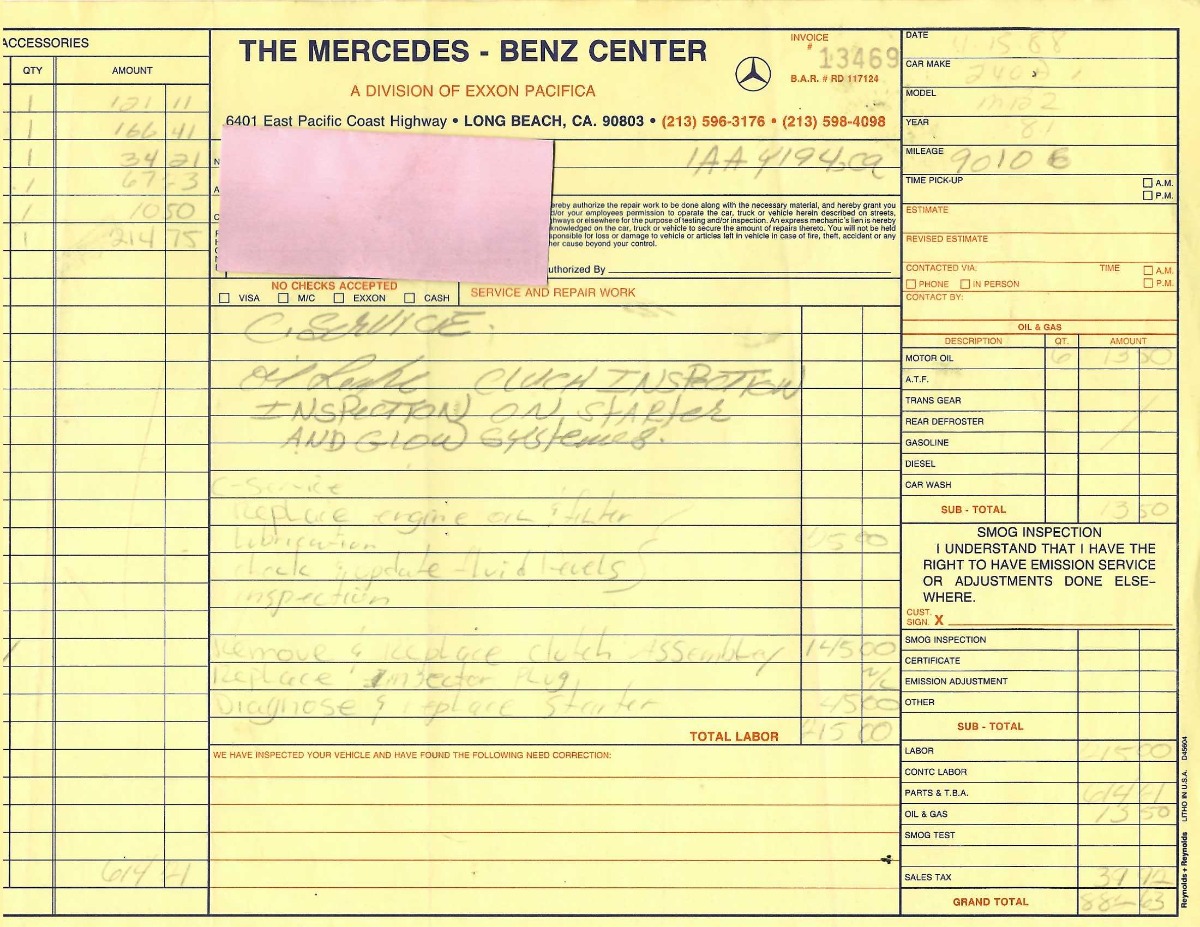 ACCESSORIES
QTY AMOUNT
1 121 11
1 166 41
1 34 21
1 67
1 10 50
1 214 75
614
THE MERCEDES - BENZ CENTER
A DIVISION OF EXXON PACIFICA
6401 East Pacific Coast Highway • LONG BEACH, CA. 90803 • (213) 596-3176 • (213) 598-4098
INVOICE
# 13469
B.A.R. # RD 117124
ereby authorize the repair work to be done along with the necessary material, and hereby grant you
d/or your employees permission to operate the car, truck or vehicle herein described on streets,
hways or elsewhere for the purpose of testing and/or inspection. An express mechanic's lien is hereby
knowledged on the car, truck or vehicle to secure the amount of repairs thereto. You will not be held
sponsible for loss or damage to vehicle or articles left in vehicle in case of fire, theft, accident or any
her cause beyond your control.
uthorized By
NO CHECKS ACCEPTED
VISA M/C EXXON CASH
SERVICE AND REPAIR WORK
C. SERVICE.
Oil Leake CLUCH INSPECTION
INSPECTION ON STARTER
AND GLOW SYSTEMES.
C-Service
Replace engine oil & filter
Lubrication
check & update fluid levels
inspection
Remove & Replace clutch Assembley 145 00
Replace Injector Plug N/C
Diagnose & replace starter 45 00
TOTAL LABOR 00
WE HAVE INSPECTED YOUR VEHICLE AND HAVE FOUND THE FOLLOWING NEED CORRECTION:
DATE 4 15 88
CAR MAKE 240D
MODEL
YEAR 81
MILEAGE 90106
TIME PICK-UP A.M.
P.M.
ESTIMATE
REVISED ESTIMATE
CONTACTED VIA: TIME A.M.
PHONE IN PERSON P.M.
CONTACT BY:
OIL & GAS
DESCRIPTION QT. AMOUNT
MOTOR OIL 6 13 50
A.T.F.
TRANS GEAR
REAR DEFROSTER
GASOLINE
DIESEL
CAR WASH
SUB - TOTAL 13 50
SMOG INSPECTION
I UNDERSTAND THAT I HAVE THE
RIGHT TO HAVE EMISSION SERVICE
OR ADJUSTMENTS DONE ELSE-
WHERE.
CUST.
SIGN. X
SMOG INSPECTION
CERTIFICATE
EMISSION ADJUSTMENT
OTHER
SUB - TOTAL
LABOR 00
CONTC LABOR
PARTS & T.B.A. 614
OIL & GAS 13 50
SMOG TEST
SALES TAX 39
GRAND TOTAL 63
Reynolds + Reynolds LITHO IN U.S.A. D45604